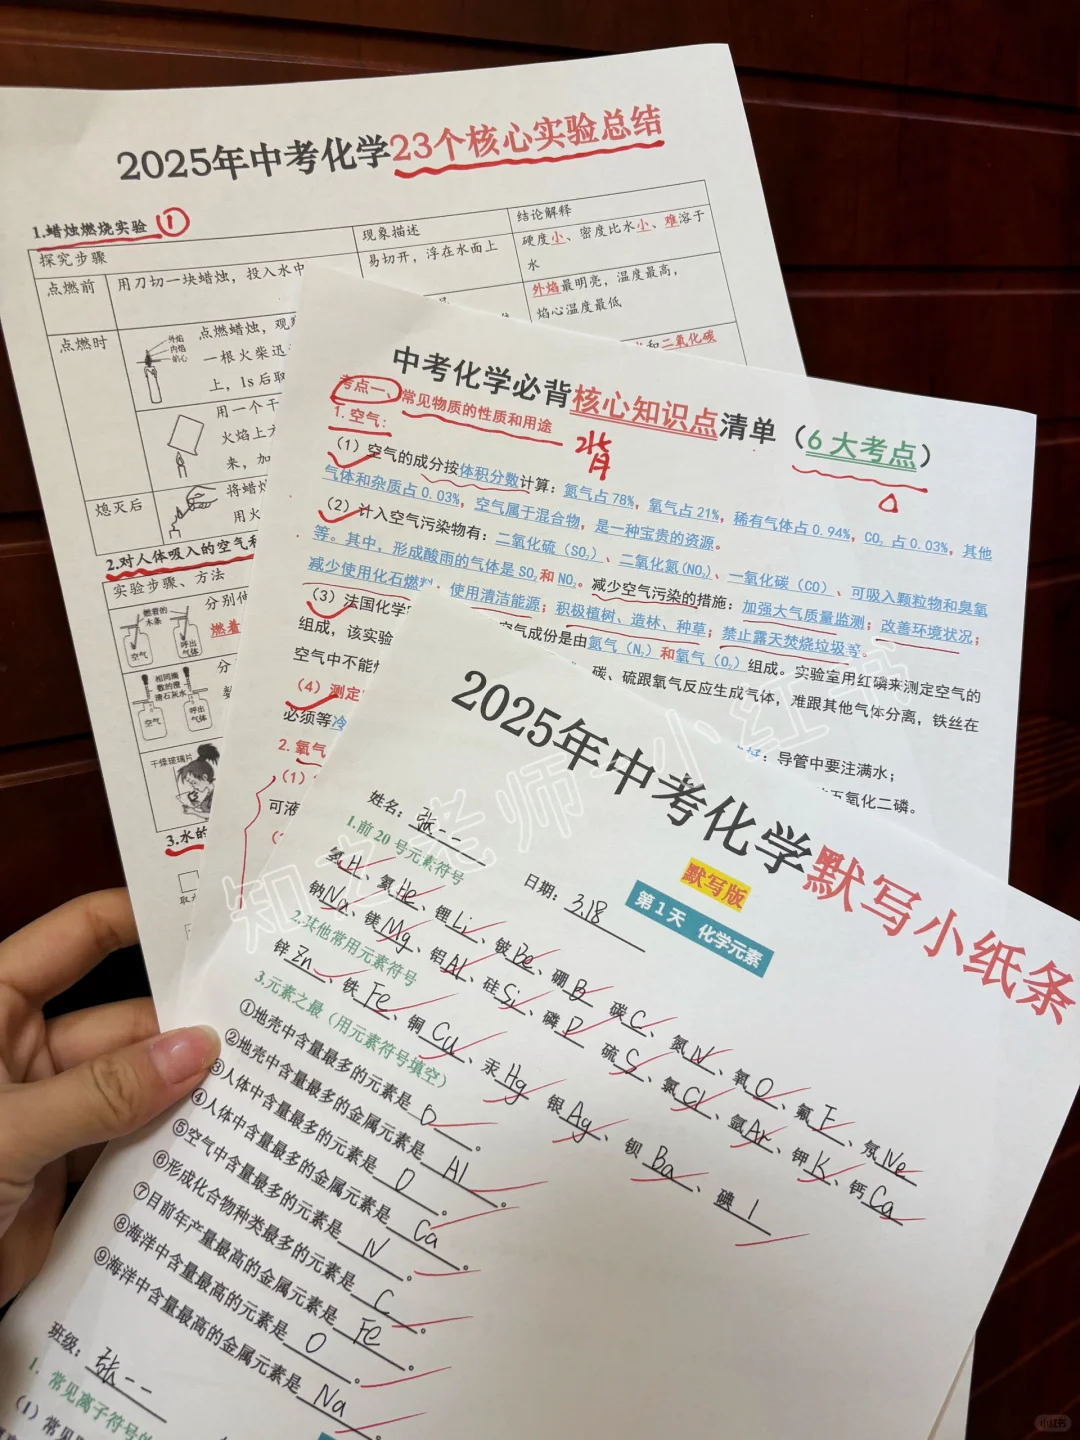 2025年中考化学23个核心实验总结
1.蜡烛燃烧实验 ①
探究步骤
现象描述
结论解释
点燃前
用刀切一块蜡烛，投入水中
易切开，浮在水面上
硬度小、密度比水小、难溶于
水
点燃时
外焰
内焰
焰心
点燃蜡烛，观察
一根火柴迅
上，1s后取
外焰最明亮，温度最高，
焰心温度最低
和二氧化碳
用一个干
火焰上方
来，加
熄灭后
将蜡烛
用火
2.对人体吸入的空气和
实验步骤、方法
燃着的
木条
空气
呼出
气体
分别伸
燃着
相同滴
数的澄
清石灰水
空气
呼出
气体
分
干燥玻璃片
3.水的
中考化学必背核心知识点清单（6大考点）
考点一、常见物质的性质和用途
背
1.空气：
（1）空气的成分按体积分数计算：氮气占78%，氧气占21%，稀有气体占0.94%，CO₂占0.03%，其他
气体和杂质占0.03%，空气属于混合物，是一种宝贵的资源。
（2）计入空气污染物有：二氧化硫（SO₂）、二氧化氮(NO₂)、一氧化碳（CO）、可吸入颗粒物和臭氧
等。其中，形成酸雨的气体是SO₂和NO₂。减少空气污染的措施：加强大气质量监测；改善环境状况；
减少使用化石燃料、使用清洁能源；积极植树、造林、种草；禁止露天焚烧垃圾等。
（3）法国化学家
空气成份是由氮气（N₂）和氧气（O₂）组成。实验室用红磷来测定空气的
组成，该实验
碳、硫跟氧气反应生成气体，难跟其他气体分离，铁丝在
空气中不能燃
（4）测定
：导管中要注满水；
必须等冷
五氧化二磷。
2.氧气
（1）
可液
2025年中考化学默写小纸条
姓名：张一一
默写版
日期：3.18
第1天 化学元素
1.前20号元素符号
氢H、氦He、锂Li、铍Be、硼B 碳C、氮N、氧O、氟F、氖Ne
钠Na、镁Mg、铝Al、硅Si、磷P 硫S、氯Cl、氩Ar、钾K、钙Ca
2.其他常用元素符号
锌Zn、铁Fe、铜Cu、汞Hg 银Ag、钡Ba、碘I
3.元素之最（用元素符号填空）
①地壳中含量最多的元素是O。
②地壳中含量最多的金属元素是Al。
③人体中含量最多的元素是O。
④人体中含量最多的金属元素是Ca。
⑤空气中含量最多的元素是N。
⑥形成化合物种类最多的元素是C。
⑦目前年产量最高的金属元素是Fe。
⑧海洋中含量最高的元素是O。
⑨海洋中含量最高的金属元素是Na。
班级：张一一
1.常见离子符号的
（1）常见
知之老师 小红书
小红书